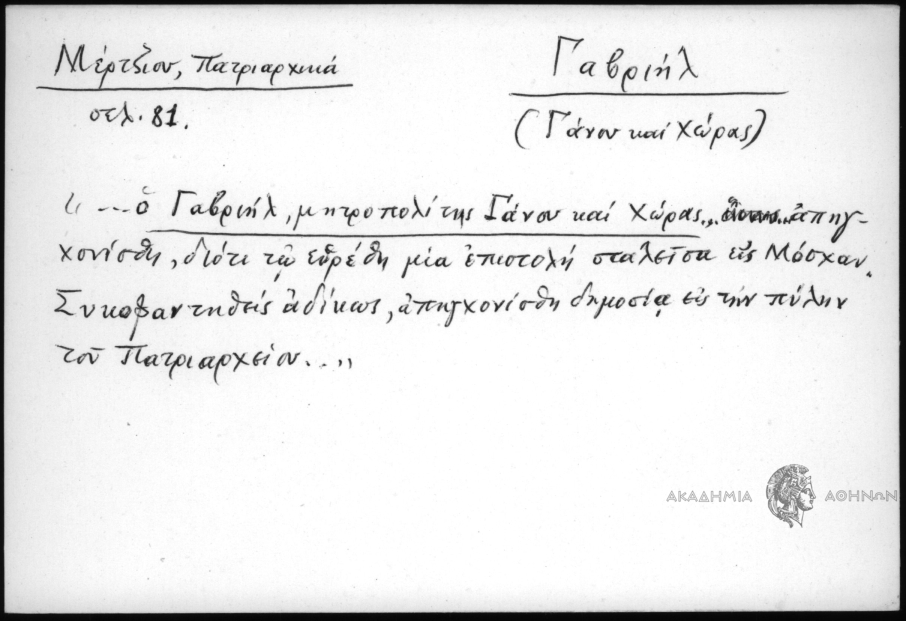 Μέρτζιου, Πατριαρχικά
σελ. 81.
Γαβριήλ
(Γάνου καί Χώρας)
"...ὁ Γαβριήλ, μητροπολίτης Γάνου καί Χώρας... ἀπηγ-
χονίσθη, διότι τῷ εὑρέθη μία ἐπιστολή σταλεῖσα εἰς Μόσχαν.
Συκοφαντηθείς ἀδίκως, ἀπηγχονίσθη δημοσίᾳ εἰς τήν πύλην
τοῦ Πατριαρχείου..."
ΑΚΑΔΗΜΙΑ ΑΘΗΝΩΝ